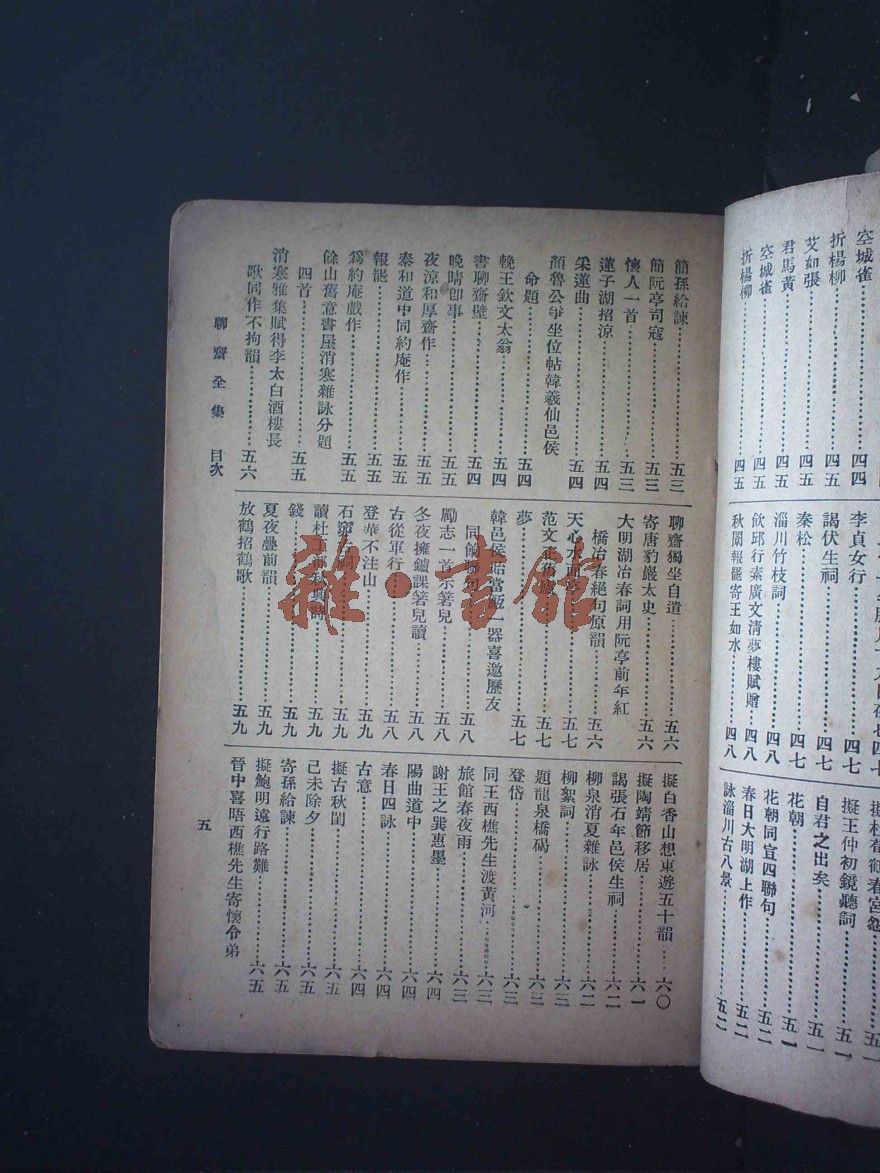 空城雀
折楊柳⋯⋯四四
艾如張⋯⋯四五
君馬黃⋯⋯四五
空城雀⋯⋯四五
折楊柳⋯⋯四五
李貞女行⋯⋯四七
謁伏生祠⋯⋯四七
秦松⋯⋯四七
淄川竹枝詞⋯⋯四八
飲邱行素廣文清夢樓賦贈⋯⋯四八
秋闈報罷寄王如水⋯⋯四八
擬王仲初鏡聽詞⋯⋯五一
自君之出矣⋯⋯五一
花朝⋯⋯五一
花朝同宣四聯句⋯⋯五二
春日大明湖上作⋯⋯五二
詠淄川古八景⋯⋯五二
簡孫給諫⋯⋯五三
簡阮亭司寇⋯⋯五三
懷人一首⋯⋯五三
蓮子湖招涼⋯⋯五四
采蓮曲⋯⋯五四
顏魯公爭坐位帖韓羲仙邑侯
命題⋯⋯五四
輓王欽文太翁⋯⋯五四
書聊齋壁⋯⋯五四
晚晴卽事⋯⋯五五
夜涼和厚齋作⋯⋯五五
泰和道中同約庵作⋯⋯五五
報罷⋯⋯五五
爲約庵戲作⋯⋯五五
餘山舊意書屋消寒雜詠分題
四首⋯⋯五五
消寒雅集賦得李太白酒樓長
歌同作不拘韻⋯⋯五六
聊齋獨坐自遣⋯⋯五六
寄唐豹嚴太史⋯⋯五六
大明湖冶春詞用阮亭前年紅
橋冶春絕句原韻⋯⋯五六
天心水⋯⋯五七
范文正⋯⋯五七
夢⋯⋯五七
韓邑侯貽當⋯一器喜邀歷友
同⋯⋯五八
勵志一首示箬兒⋯⋯五八
冬夜擁鑪課箬兒讀⋯⋯五八
古從軍行⋯⋯五八
登華不注山⋯⋯五九
石⋯⋯五九
讀杜工部秋興詩⋯⋯五九
錢⋯⋯五九
夏夜疊前韻⋯⋯五九
放鶴招鶴歌⋯⋯五九
擬白香山想東遊五十韻⋯⋯六〇
擬陶靖節移居⋯⋯六一
謁張石年邑侯生祠⋯⋯六二
柳泉消夏雜詠⋯⋯六二
柳絮詞⋯⋯六三
題龍泉橋碣⋯⋯六三
登岱⋯⋯六三
同王西樵先生渡黃河⋯⋯六三
旅館春夜雨⋯⋯六三
謝王之巽惠墨⋯⋯六四
陽曲道中⋯⋯六四
春日四詠⋯⋯六四
古意⋯⋯六四
擬古秋閨⋯⋯六五
己未除夕⋯⋯六五
寄孫給諫⋯⋯六五
擬鮑明遠行路難⋯⋯六五
晉中喜晤西樵先生寄懷令弟
聊齋全集 目次
五
雜·書館